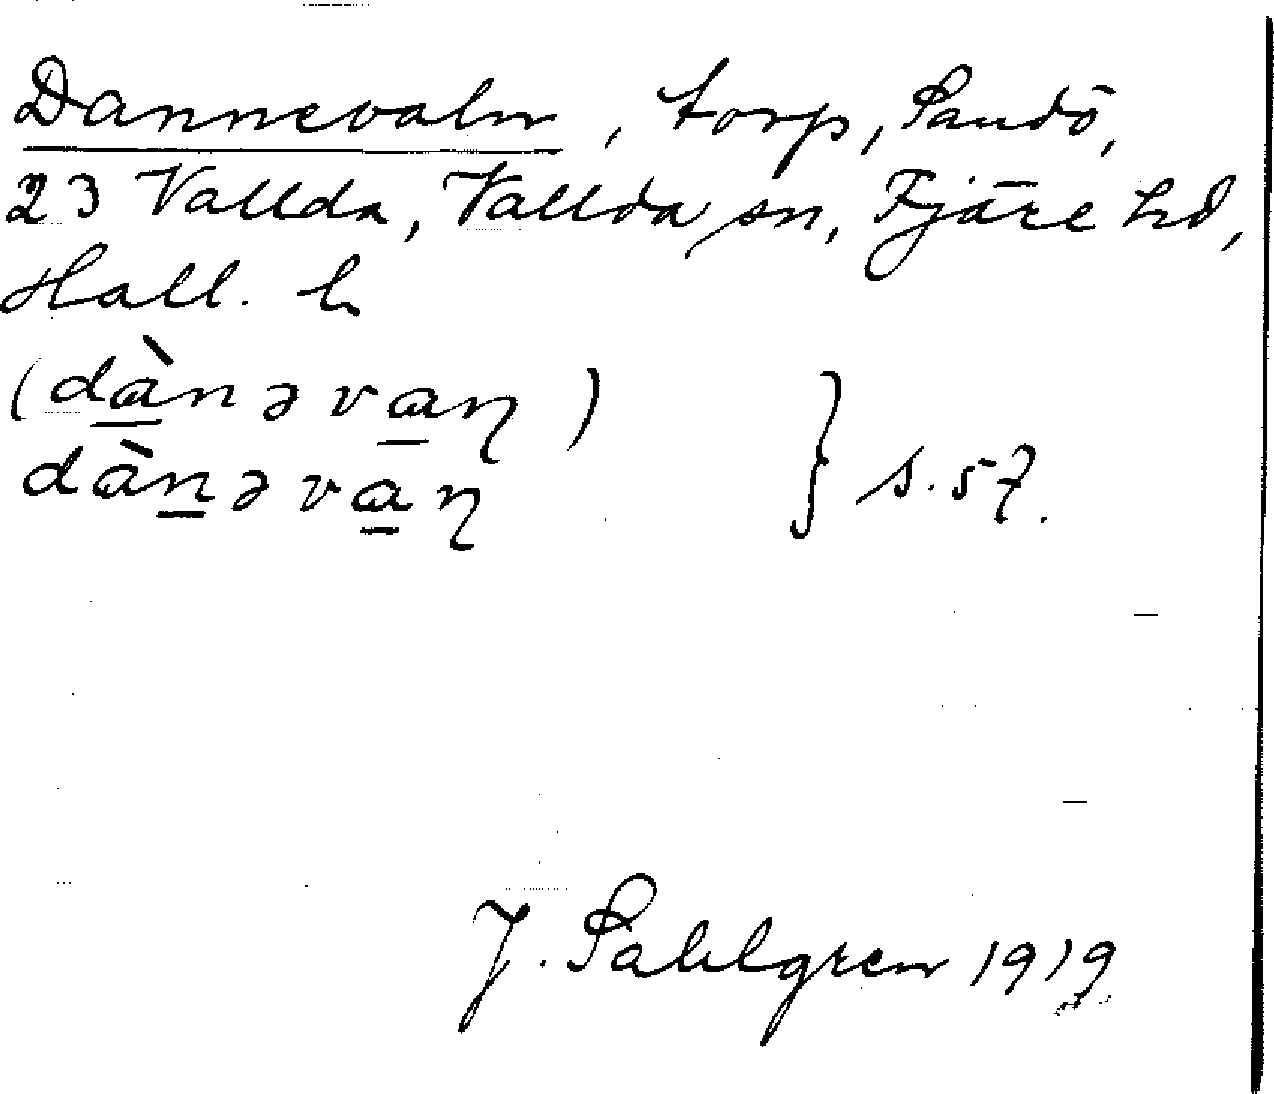 Dannevaln, torp, Sandö,
23 Vallda, Vallda sn, Fjäre hd,
Hall. l.
(dànəvaη)
dànəvaη } s. 57.
J. Sahlgren 1919